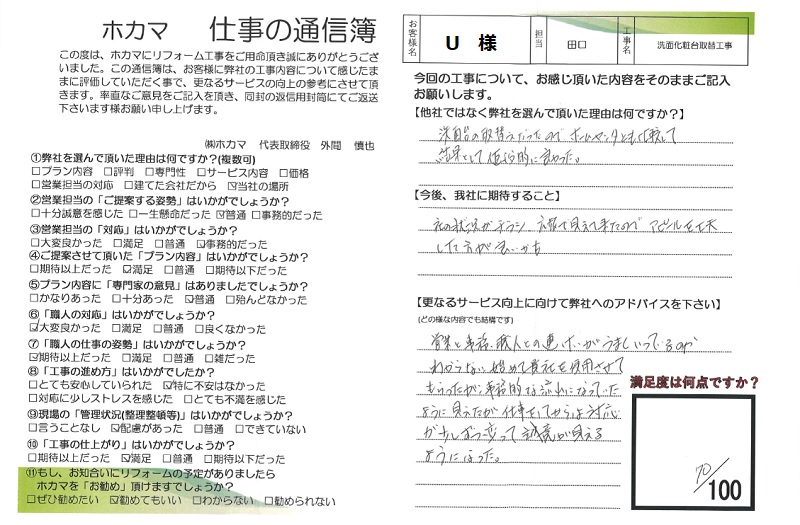 ホカマ 仕事の通信簿
この度は、ホカマにリフォーム工事をご用命頂き誠にありがとうござ
いました。この通信簿は、お客様に弊社の工事内容について感じたま
まに評価していただく事で、更なるサービスの向上の参考にさせて頂
きます。率直なご意見をご記入を頂き、同封の返信用封筒にてご返送
下さいます様お願い申し上げます。
㈱ホカマ 代表取締役 外間 慎也
①弊社を選んで頂いた理由は何ですか?(複数可)
□プラン内容 □評判 □専門性 □サービス内容 □価格
□営業担当の対応 □建てた会社だから ☑当社の場所
②営業担当の「ご提案する姿勢」はいかがでしょうか?
□十分誠意を感じた □一生懸命だった ☑普通 □事務的だった
③営業担当の「対応」はいかがでしょうか?
□大変良かった □満足 □普通 ☑事務的だった
④ご提案させて頂いた「プラン内容」はいかがでしょうか?
□期待以上だった ☑満足 □普通 □期待以下だった
⑤プラン内容に「専門家の意見」はありましたでしょうか?
□かなりあった □十分あった ☑普通 □殆んどなかった
⑥「職人の対応」はいかがでしょうか?
☑大変良かった □満足 □普通 □良くなかった
⑦「職人の仕事の姿勢」はいかがでしょうか?
☑期待以上だった □満足 □普通 □雑だった
⑧「工事の進め方」はいかがでしたか?
□とても安心していられた ☑特に不安はなかった
□対応に少しストレスを感じた □とても不満を感じた
⑨現場の「管理状況(整理整頓等)」はいかがでしょうか?
□言うことなし ☑配慮があった □普通 □できていない
⑩「工事の仕上がり」はいかがでしょうか?
□期待以上だった ☑満足 □普通 □期待以下だった
⑪もし、お知合いにリフォームの予定がありましたら
ホカマを「お勧め」頂けますでしょうか?
□ぜひ勧めたい ☑勧めてもいい □わからない □勧められない
お客様名 U 様 担当 田口 工事名 洗面化粧台取替工事
今回の工事について、お感じ頂いた内容をそのままご記入
お願いします。
【他社ではなく弊社を選んで頂いた理由は何ですか?】
洗面台の取替えだったのでホームセンターとも比較して
結果として価格的に良かった。
【今後、我社に期待すること】
した方が良いかも
【更なるサービス向上に向けて弊社へのアドバイスを下さい】
(どの様な内容でも結構です)
営業と事務、職人との連けいがうまくいっているのか
わからない。始めて貴社を使用させて
もらったが、事務的な流れになっていた
ように見えたが仕事をしてからは対応
が少しずつ変って誠意が見える
ようになった。
満足度は何点ですか?
70/100